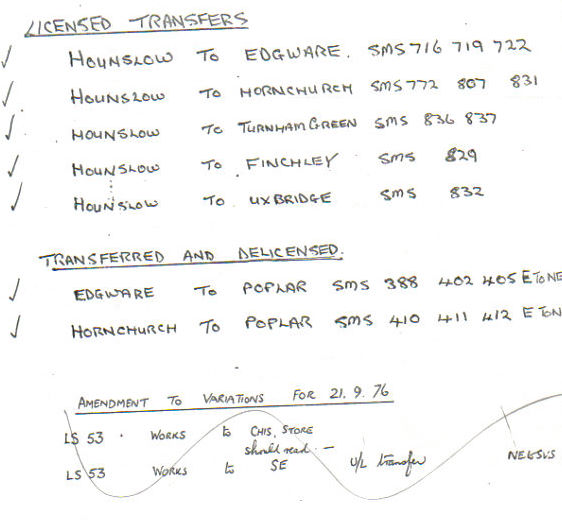 LICENSED TRANSFERS
HOUNSLOW TO EDGWARE. SMS 716 719 722
HOUNSLOW TO HORNCHURCH SMS 772 807 831
HOUNSLOW TO TURNHAM GREEN SMS 836 837
HOUNSLOW TO FINCHLEY SMS 829
HOUNSLOW TO UXBRIDGE SMS 832
TRANSFERRED AND DELICENSED.
EDGWARE TO POPLAR SMS 388 402 405 E TO NE
HORNCHURCH TO POPLAR SMS 410 411 412 E TO N
AMENDMENT TO VARIATIONS FOR 21. 9. 76
LS 53 . WORKS to CHIS. STORE
should read. —
LS 53 WORKS to SE U/L transfer